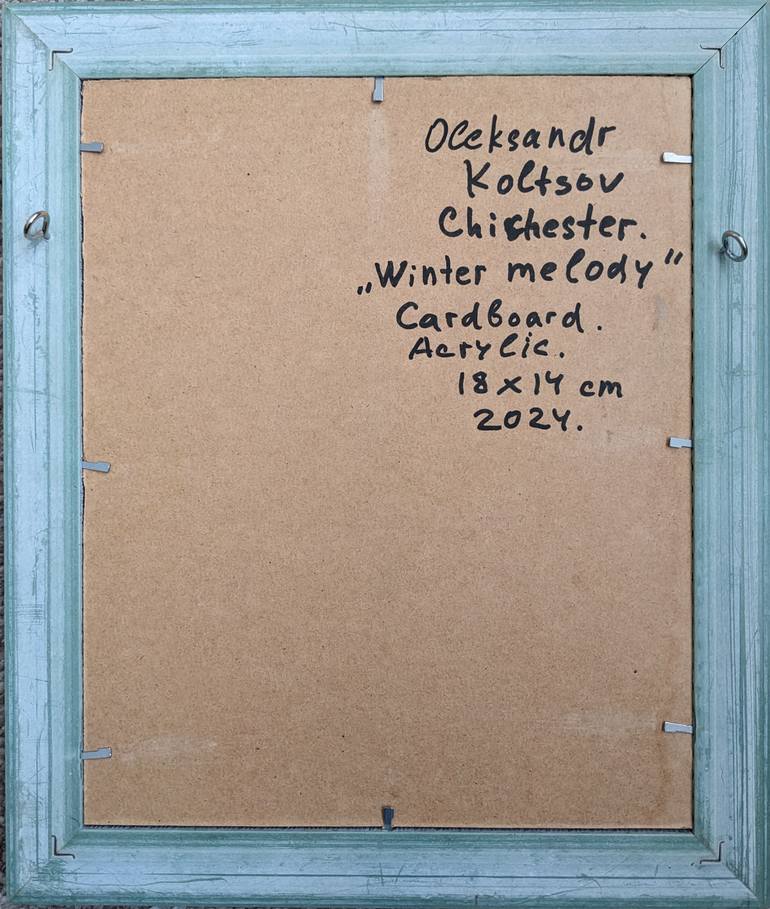 Oleksandr
Koltsov
Chichester.
„Winter melody”
Cardboard.
Acrylic.
18 x 14 cm
2024.